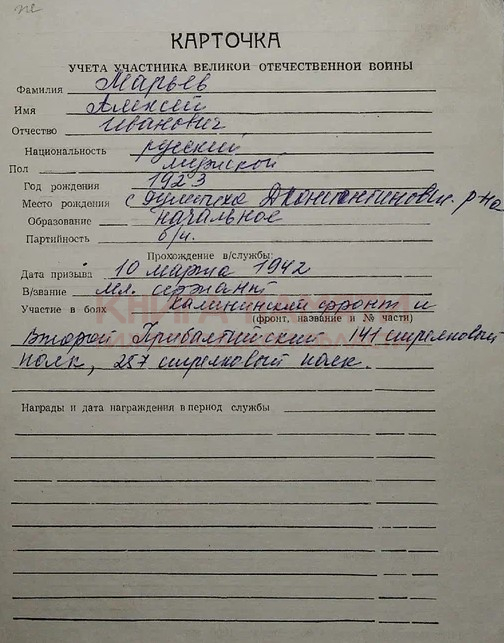 КАРТОЧКА
УЧЕТА УЧАСТНИКА ВЕЛИКОЙ ОТЕЧЕСТВЕННОЙ ВОЙНЫ
Фамилия Марьев
Имя Алексей
Отчество Иванович
Национальность русский
Пол мужской
Год рождения 1923
Место рождения с. Д.Константиновск. р-на
Образование начальное
Партийность б/п.
Прохождение в/службы:
Дата призыва 10 марта 1942
В/звание мл. сержант
Участие в боях Калининский фронт и
(фронт, название и № части)
Второй Прибалтийский 141 стрелковый
полк, 257 стрелковый полк.
Награды и дата награждения в период службы